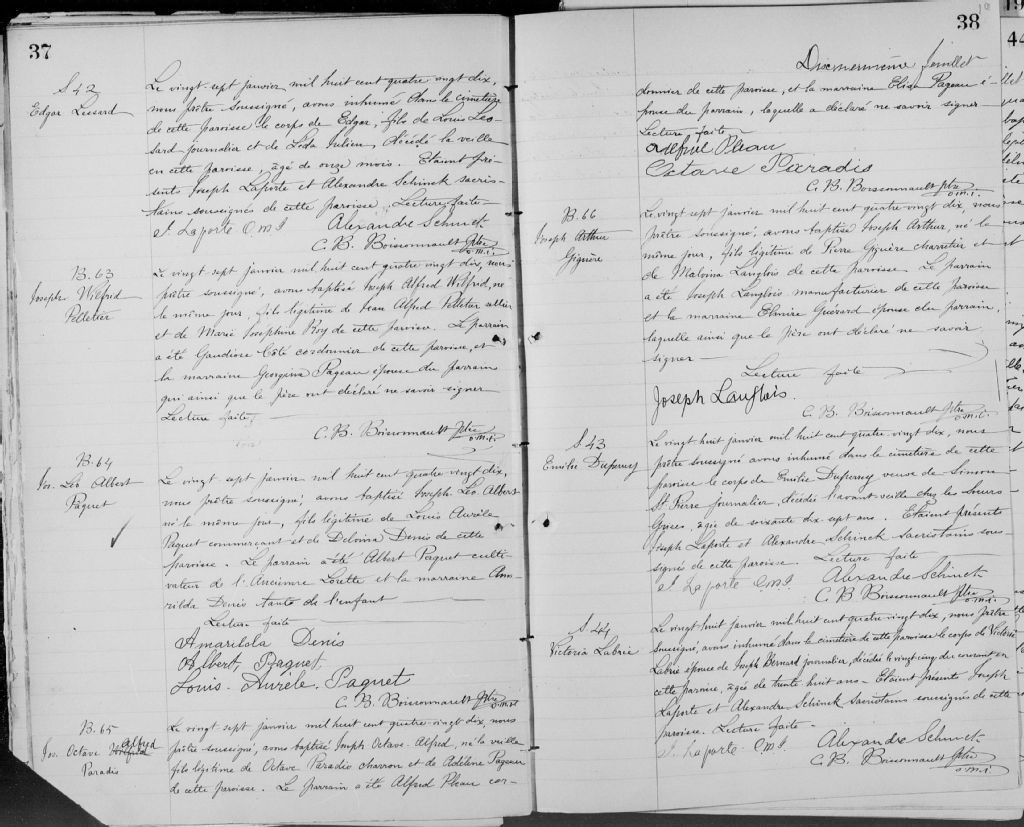 37
S 42
Edgar Lessard
Le vingt-sept janvier mil huit cent quatre vingt dix,
nous prêtre soussigné, avons inhumé dans le cimetière
de cette paroisse le corps de Edgar, fils de Louis Les-
sard journalier et de Léda Julien, décédé la veille
en cette paroisse, agé de onze mois. Etaient pré-
sents Joseph Laporte et Alexandre Schinck sacris-
tains soussignés de cette paroisse. Lecture faite
J. Laporte O.M.I Alexandre Schinck
C. B. Boissonnault ptre
o.m.i.
B.63
Joseph Wilfrid
Pelletier
Le vingt sept janvier mil huit cent quatre vingt dix, nous
prêtre soussigné, avons baptisé Joseph Alfred Wilfrid, né
le même jour, fils légitime de Jean Alfred Pelletier sellier
et de Marie Josephine Roy de cette paroisse. Le parrain
a été Gaudiose Côté cordonnier de cette paroisse, et
la marraine Georgina Pageau épouse du parrain
qui ainsi que le père ont déclaré ne savoir signer
Lecture faite,
C. B. Boissonnault ptre
o.m.i.
B.64
Jos. Léo Albert
Paquet
Le vingt sept janvier mil huit cent quatre vingt dix,
nous prêtre soussigné, avons baptisé Joseph Léo Albert
né le même jour, fils légitime de Louis Aurèle
Paquet commerçant et de Delvina Denis de cette
paroisse. Le parrain a été Albert Paquet culti-
vateur de l'Ancienne Lorette et la marraine Ama-
rilda Denis tante de l'enfant
Lecture faite
Amarilda Denis
Albert Paquet
Louis-Aurèle Paquet
C. B. Boissonnault ptre
o.m.i.
B.65
Jos. Octave Wilfrid Alfred
Paradis
Le vingt sept janvier mil huit cent quatre-vingt dix, nous
prêtre soussigné, avons baptisé Joseph Octave Alfred, né la veille
fils légitime de Octave Paradis charron et de Adeline Pageau
de cette paroisse. Le parrain a été Alfred Pleau cor-
38
feuillet
donnier de cette paroisse, et la marraine Elise Pageau é-
pouse du parrain, laquelle a déclaré ne savoir signer
Lecture faite
Alfred Pleau
Octave Paradis
C. B. Boissonnault ptre
o.m.i.
B.66
Joseph Arthur
Giguère
Le vingt sept janvier mil huit cent quatre vingt dix, nous
prêtre soussigné, avons baptisé Joseph Arthur, né le
même jour, fils légitime de Pierre Giguère charretier et
de Malvina Langlois de cette paroisse. Le parrain
a été Joseph Langlois manufacturier de cette paroisse
et la marraine Elmire Guerard épouse du parrain,
laquelle ainsi que le père ont déclaré ne savoir
signer
Lecture faite
Joseph Langlois.
C. B. Boissonnault ptre
o.m.i.
S.43
Emilie Duperey
Le vingt huit janvier mil huit cent quatre vingt dix, nous
prêtre soussigné avons inhumé dans le cimetière de cette
paroisse le corps de Emilie Duperey veuve de Simon
St Pierre journalier, décédée l'avant veille chez les Soeurs
Grises, agée de soixante dix sept ans. Etaient présents
Joseph Laporte et Alexandre Schinck sacristains sous-
signés de cette paroisse. Lecture faite
J. Laporte O.M.I Alexandre Schinck
C. B Boissonnault ptre
o.m.i.
S.44
Victoria Labrie
Le vingt huit janvier mil huit cent quatre vingt dix, nous prêtre
soussigné, avons inhumé dans le cimetière de cette paroisse le corps de Victoria
Labrie épouse de Joseph Bernard journalier, décédée le vingt cinq du courant en
cette paroisse, agée de trente huit ans. Etaient présents Joseph
Laporte et Alexandre Schinck sacristains soussignés de cette
paroisse. Lecture faite
J. Laporte O.M.I. Alexandre Schinck
C. B. Boissonnault ptre
o.m.i.